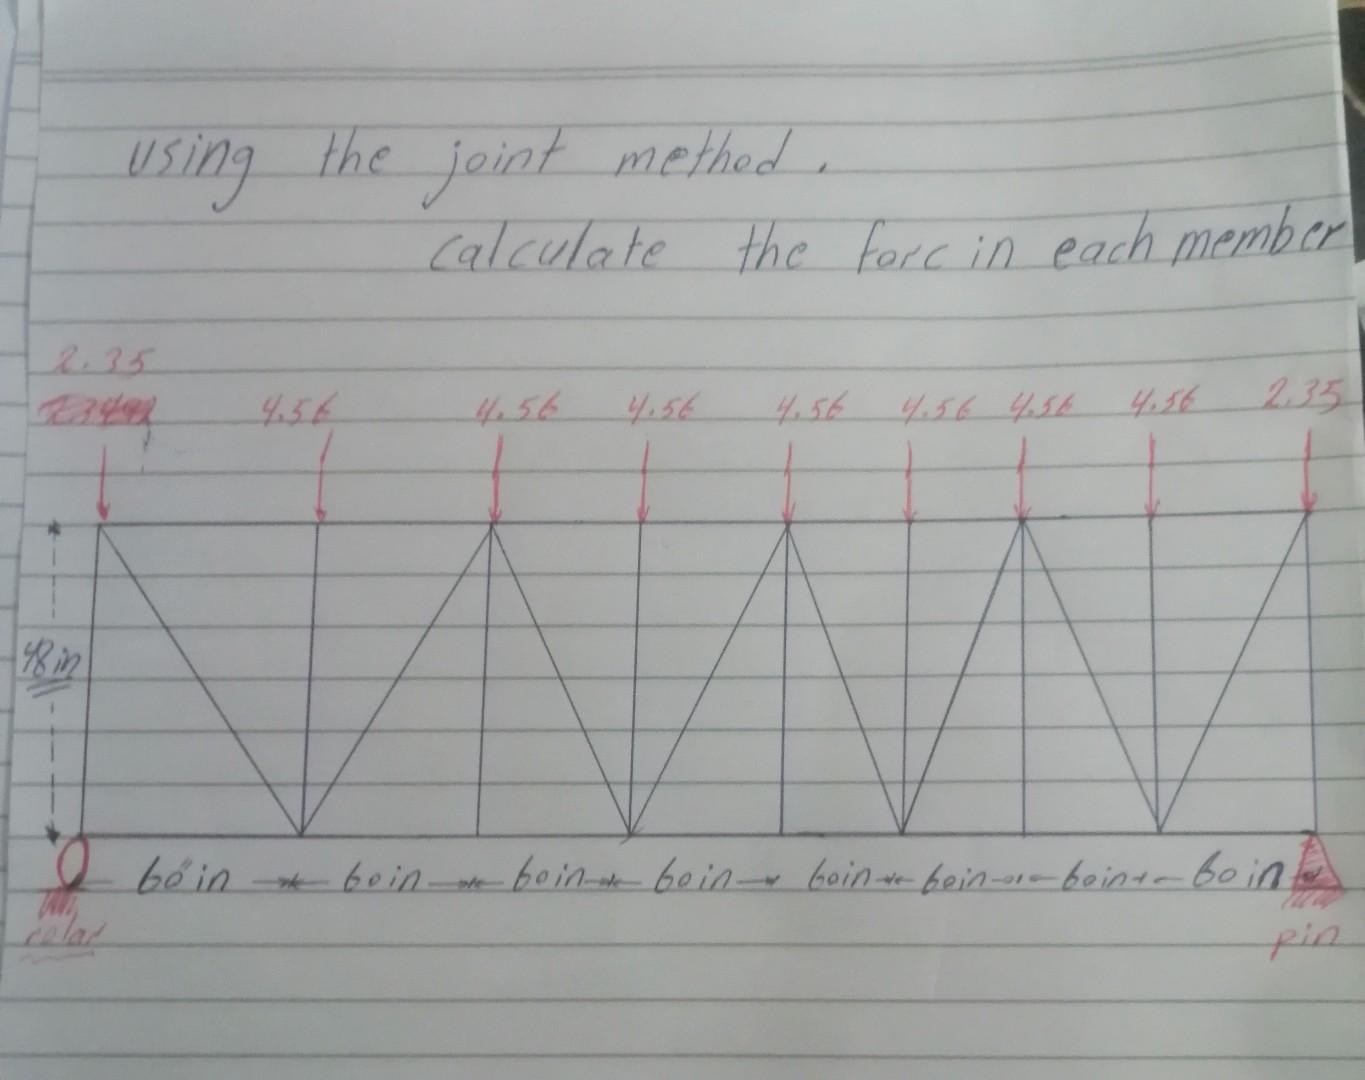 using the joint method.
calculate the forc in each member
2.35
4.56 4.56 4.56 4.56 4.56 4.56 4.56 2.35
48in
60in 60in 60in 60in 60in 60in 60in 60in
rolar
pin